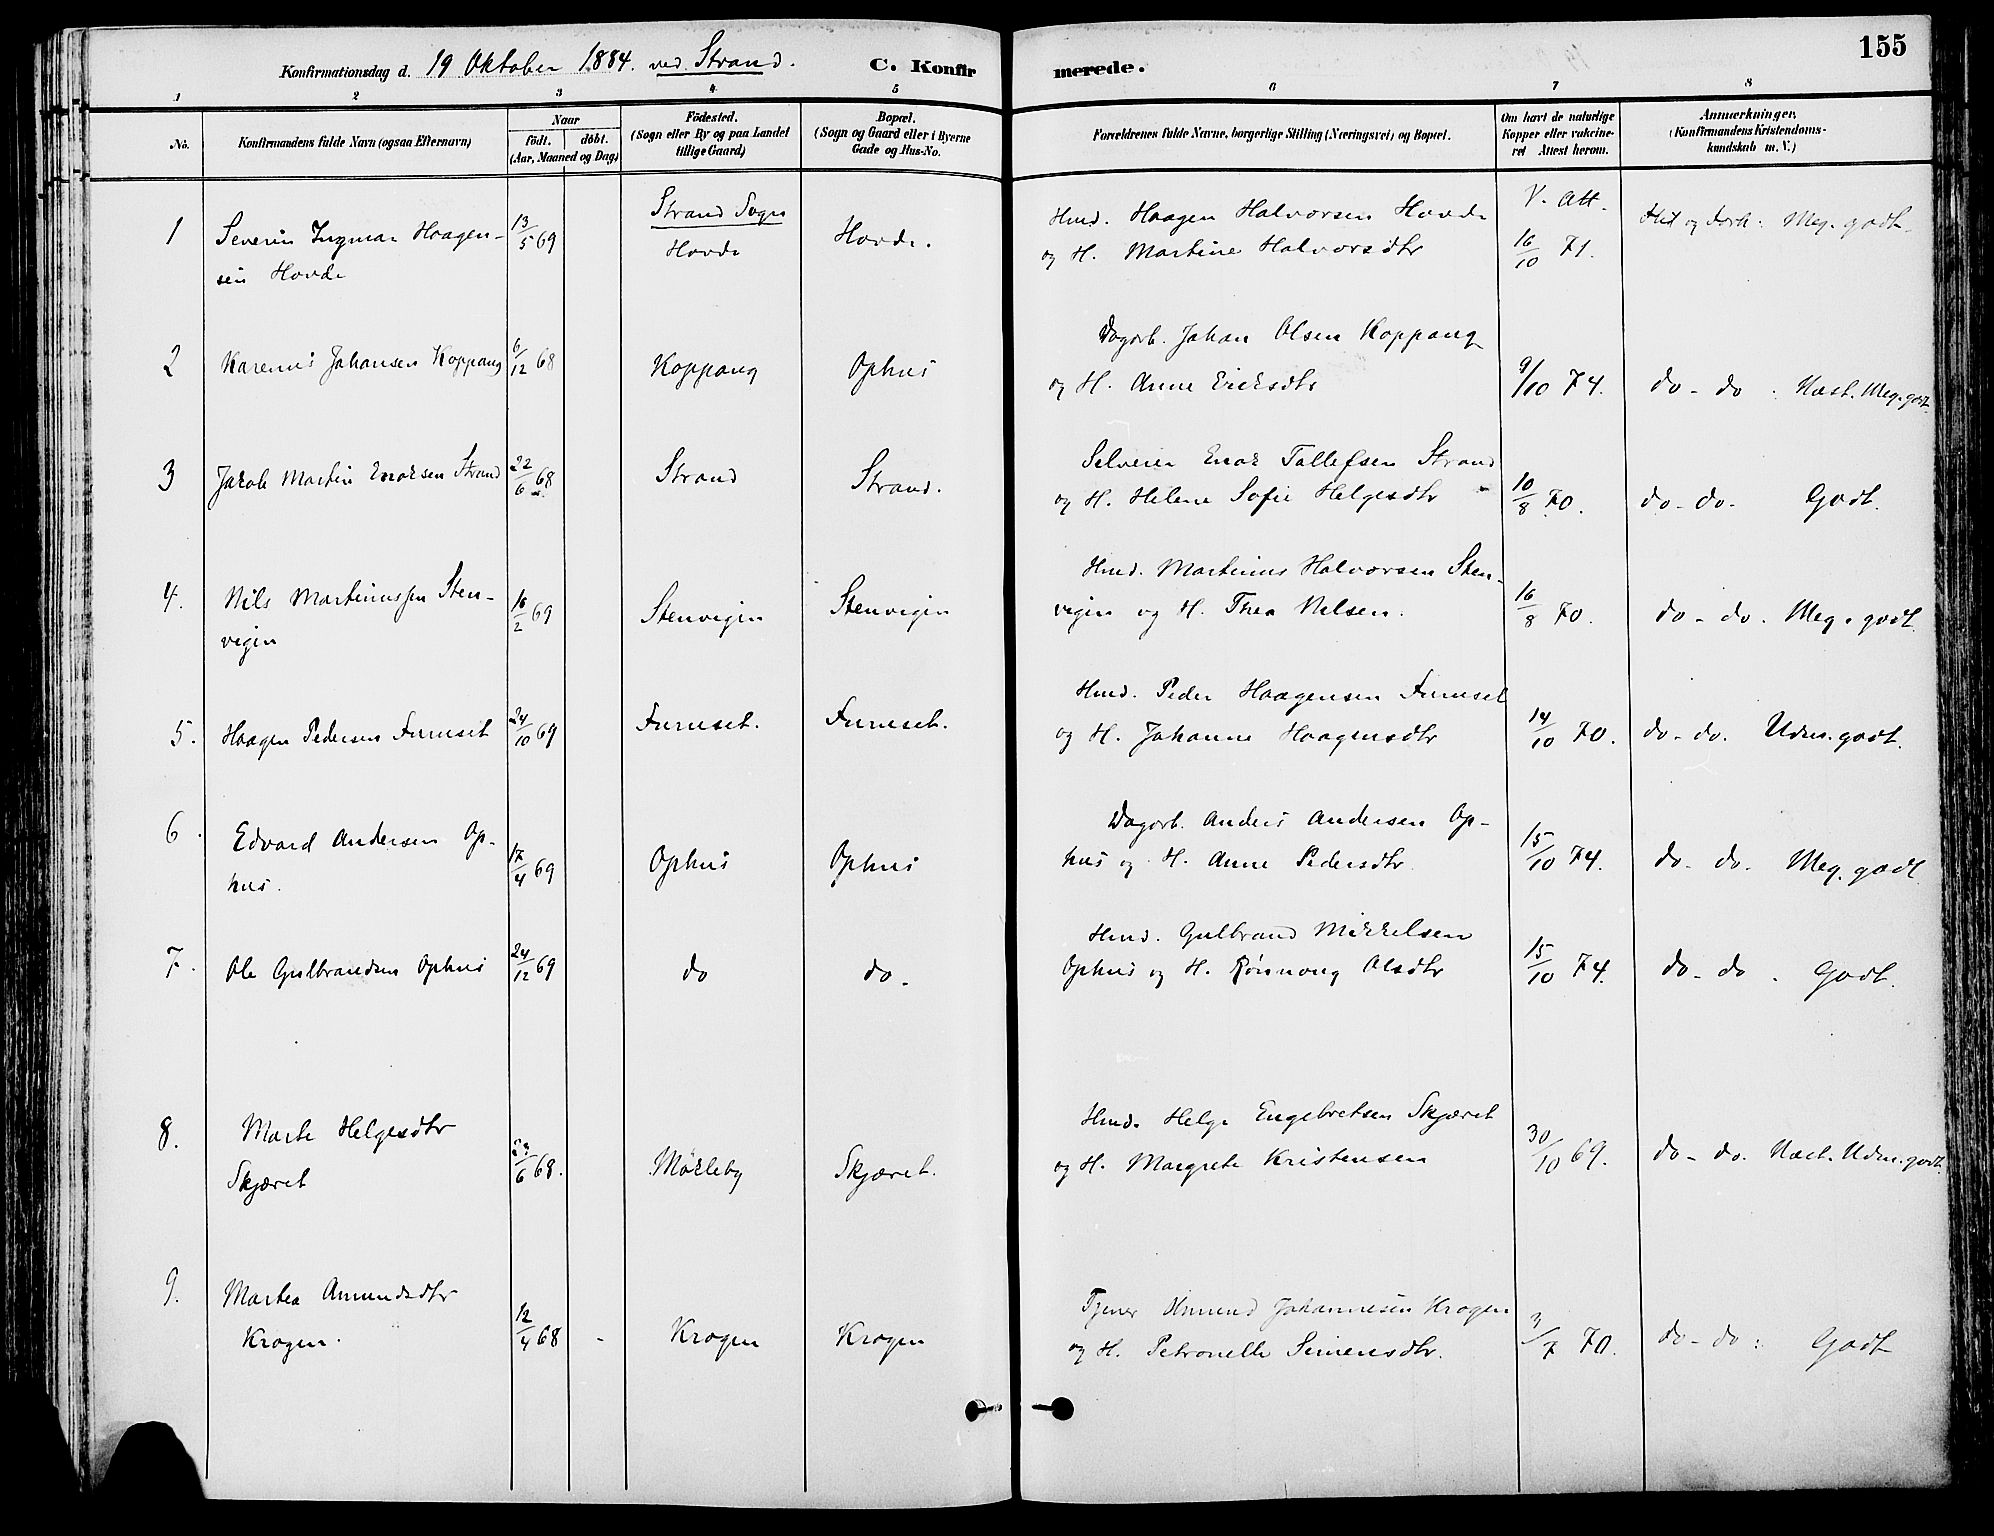 155
Konfirmationsdag d. 19 Oktober 1884. ved Strand. C. Konfirmerede.
1 2 3 4 5 6 7 8
No. Konfirmandens fulde Navn (ogsaa Efternavn) Naar födt. döbt. (Aar, Maaned og Dag) Födested. (Sogn eller By og paa Landet tillige Gaard) Bopæl. (Sogn og Gaard eller i Byerne Gade og Hus-No. Forældrenes fulde Navne, borgerlige Stilling (Næringsvei) og Bopæl. Om havt de naturlige Kopper eller vakcineret Attest herom. Anmærkninger, (Konfirmandens Kristendomskundskab m. V.)
1 Severin Ingmar Haagen- 13/5 69 Strand Sogn Hovde Hovde. Hmd. Haagen Halvorsen Hovde V. Att. Flid og Forh: Meg. godt.
sen Hovde og H. Martine Halvorsdtr 16/10 71.
2 Karenus Johansen Koppang 6/12 68 Koppang Ophus Dagarb. Johan Olsen Koppang
og H. Anne Eriksdtr 9/10 74. do - do : Næst. Meg. godt.
3 Jakob Martin Enoksen Strand 22/6 68 Strand Strand. Selveier Enok Tollefsen Strand
og H. Helene Sofie Helgesdtr 10/8 70. do - do - Godt.
4. Nils Martinussen Sten- 16/2 69 Stenvigen Stenvigen Hmd. Martinus Halvorsen Sten-
vigen vigen og H. Thea Nilsen. 16/8 70. do - do. Meg. godt.
5. Haagen Pedersen Furuset 24/10 69 Furuset. Furuset. Hmd. Peder Haagensen Furuset
og H. Johanne Haagensdtr 14/10 70. do - do. Udm. godt.
6. Edvard Andersen Op- 17/4 69 Ophus Ophus Dagarb. Anders Andersen Op-
hus. hus og H. Anne Pedersdtr. 15/10 74. do - do. Meg. godt.
7. Ole Gulbrandsen Ophus 24/12 69 do do. Hmd. Gulbrand Mikkelsen
Ophus og H. Rönnoug Olsdtr 15/10 74. do - do. Godt.
8. Marte Helgesdtr /6 68. Mökleby Skjæret. Hmd. Helge Engebretsen Skjæret
Skjæret og H. Margrete Kristensen 30/10 69. do - do. Næst. Udm. godt.
9. Martea Amundsdtr 12/4 68 - Krogen Krogen Tjener Amund Johannesen Krogen
Krogen. og H. Petronelle Simensdtr. 3/7 70. do - do : Godt